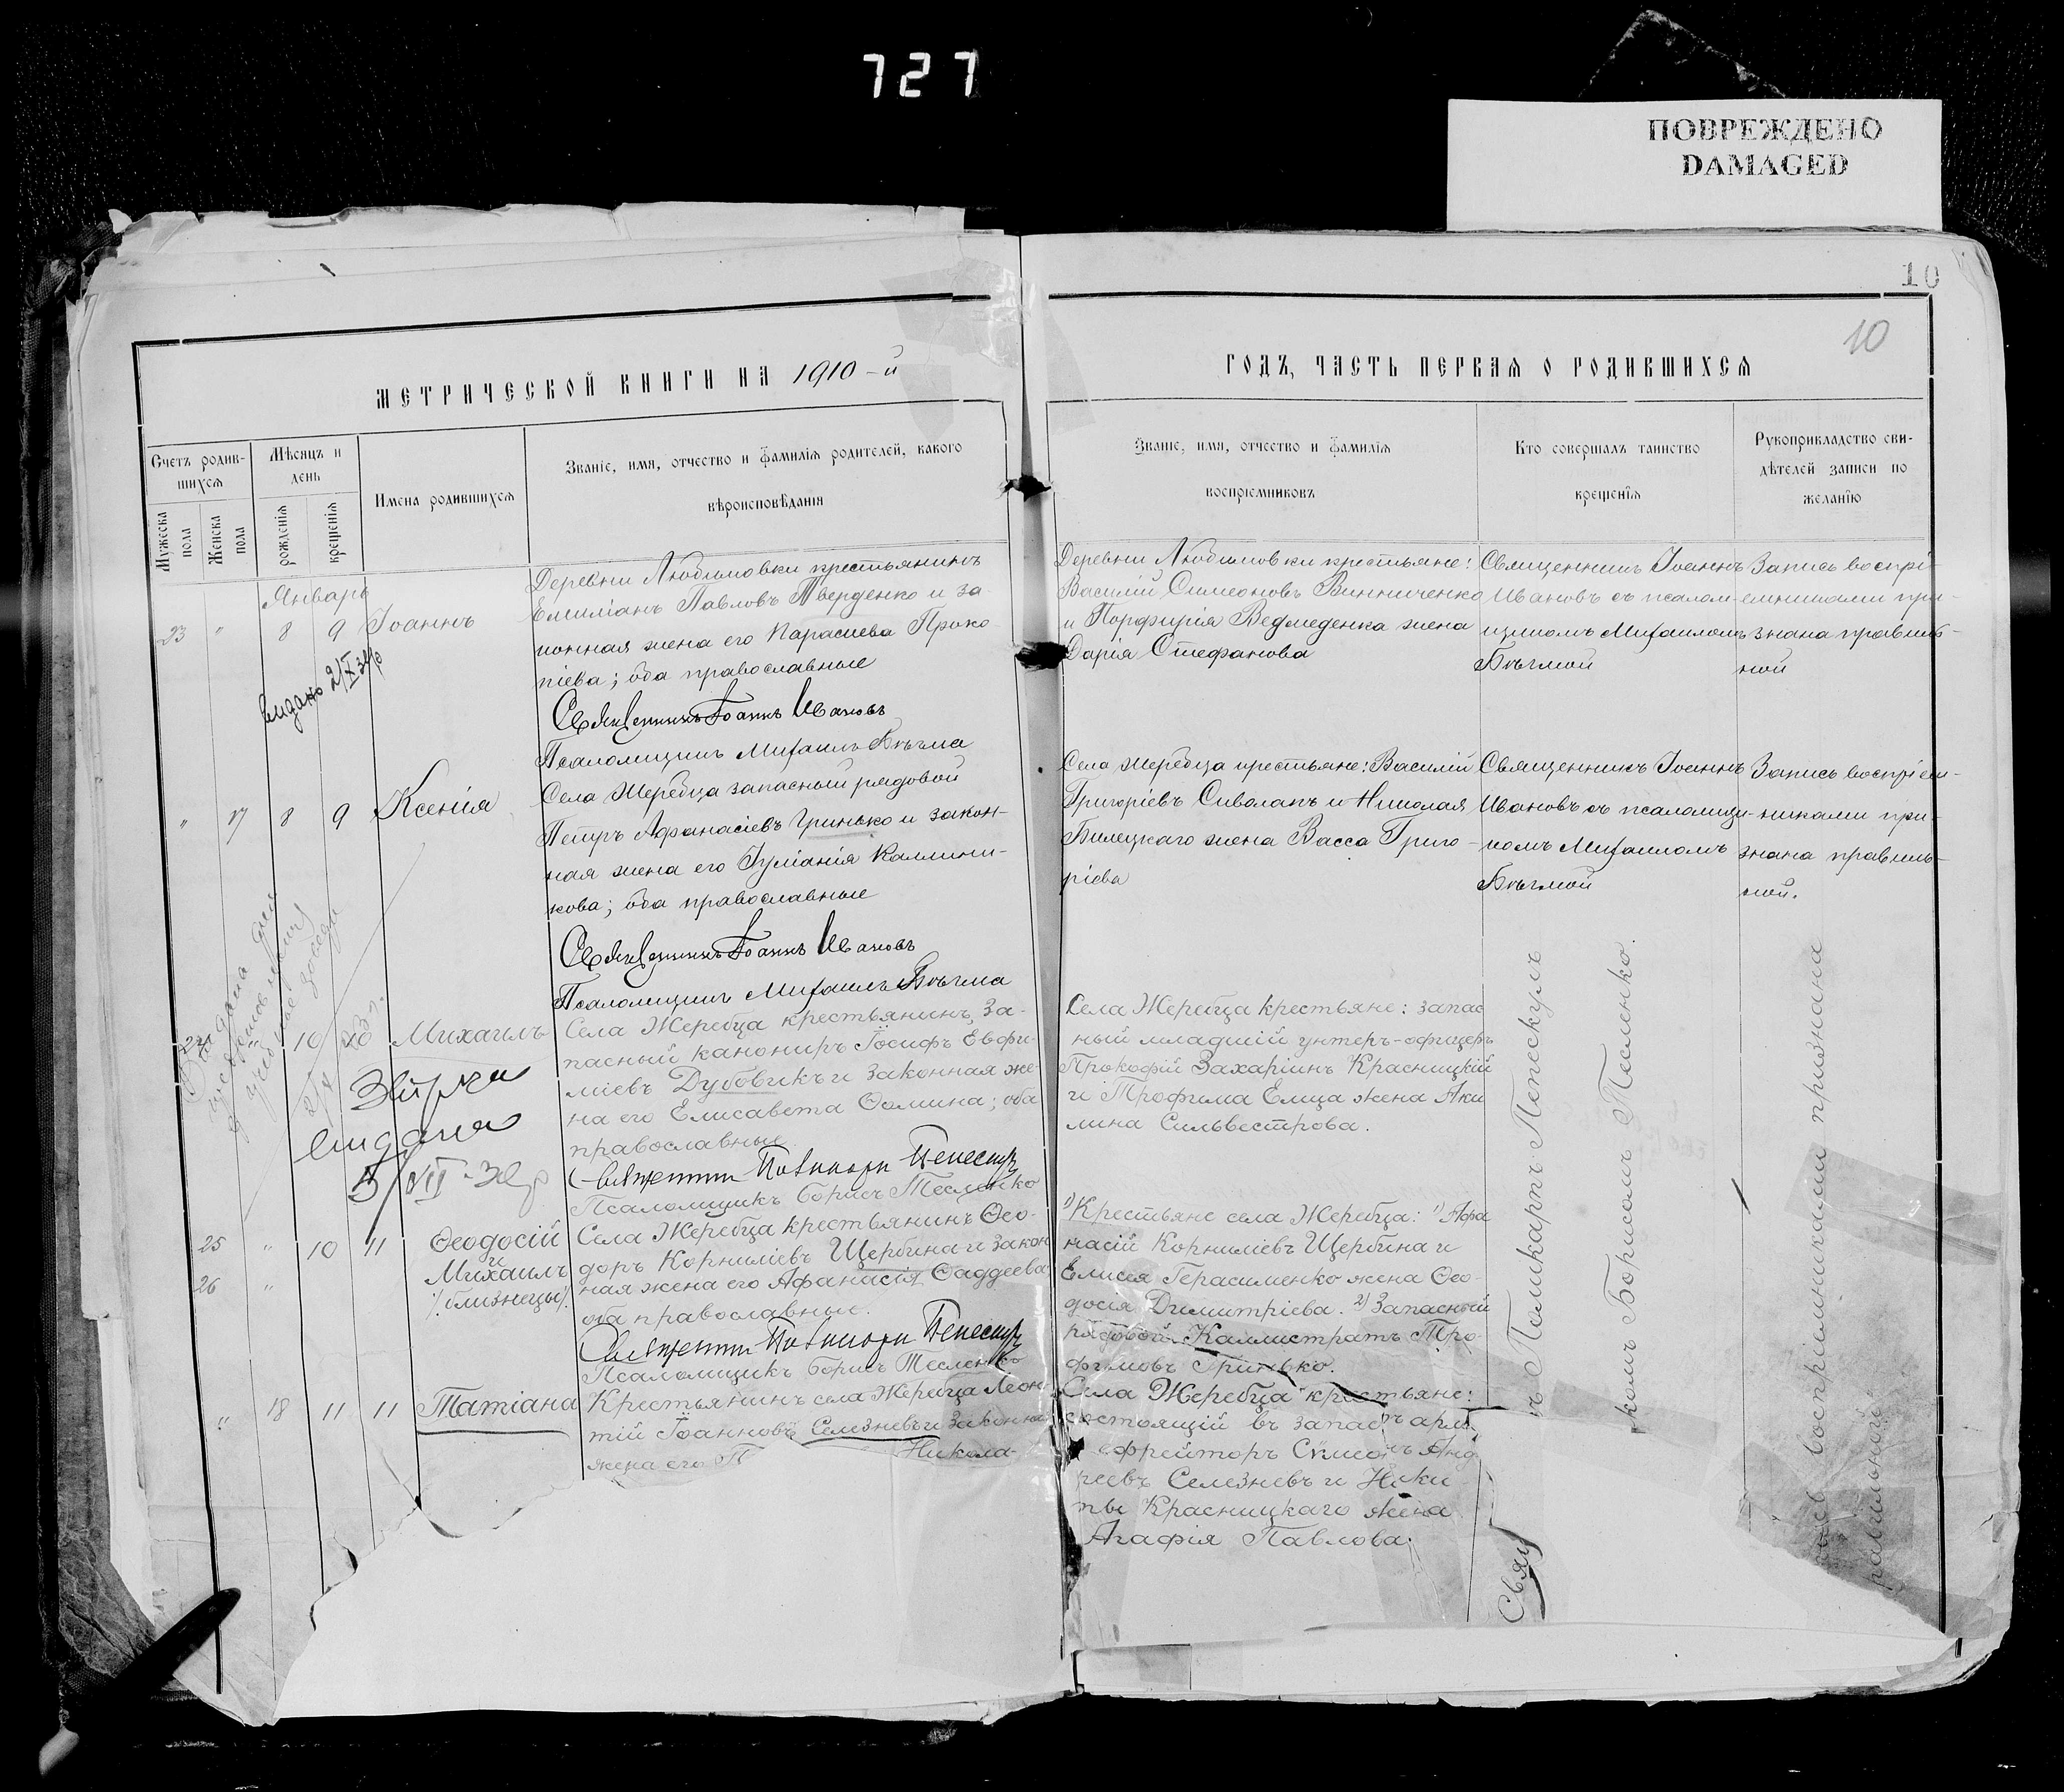 727
ПОВРЕЖДЕНО
DAMAGED
10
10
МЕТРИЧЕСКОЙ КНИГИ НА 1910-й
ГОДЪ, ЧАСТЬ ПЕРВАЯ О РОДИВШИХСЯ
Счетъ родив-
шихся
Мужеска пола
Женска пола
Мѣсяцъ и
день
рожденія
крещенія
Имена родившихся
Званіе, имя, отчество и фамилія родителей, какого
вѣроисповѣданія
Званіе, имя, отчество и фамилія
воспріемниковъ
Кто совершалъ таинство
крещенія
Рукоприкладство сви-
дѣтелей записи по
желанію
Январь
23 " 8 9 Іоаннъ
Деревни Любимовки крестьянинъ
Емиліанъ Павловъ Тверденко и за-
конная жена его Параскева Проко-
піева; оба православные
Священникъ Іоаннъ Ивановъ
Псаломщикъ Михаилъ Бѣгма
Деревни Любимовки крестьяне:
Василій Симеоновъ Винниченко
и Порфирія Ведмеденка жена
Дарія Стефанова
Священникъ Іоаннъ
Ивановъ съ псалом-
щикомъ Михаиломъ
Бѣгмой
Запись воспрі-
емниками при-
знана правиль-
ной
видано
" 17 8 9 Ксенія
Села Жеребца запасный рядовой
Петръ Афанасіевъ Гринько и закон-
ная жена его Іуліанія Каллини-
кова; оба православные
Священникъ Іоаннъ Ивановъ
Псаломщикъ Михаилъ Бѣгма
Села Жеребца крестьяне: Василій
Григоріевъ Сиволапъ и Николая
Билецкаго жена Васса Григо-
ріева
Священникъ Іоаннъ
Ивановъ съ псаломщи-
комъ Михаиломъ
Бѣгмой
Запись воспріем-
никами при-
знана правиль-
ной.
24 " 10 Михаилъ
Села Жеребца крестьянинъ, за-
пасный канониръ Іосифъ Евфи-
міевъ Дубовикъ и законная же-
на его Елисавета Ѳомина; оба
православные.
Псаломщикъ Борисъ Тесленко
Села Жеребца крестьяне: запас
ный младшій унтеръ-офицеръ
Прокофій Захаріинъ Красницкій
и Трофима Елица жена Аки
лина Сильвестрова.
видана
25 " 10 11 Ѳеодосій
и
26 " Михаилъ
/близнецы/.
Села Жеребца крестьянинъ Ѳео-
доръ Корниліевъ Щербина и закон
ная жена его Афанасія Ѳаддеева
оба православные.
Псаломщикъ Борисъ Тесленко
Крестьяне села Жеребца: 1) Афа
насій Корниліевъ Щербина и
Елисея Герасименко жена Ѳео-
досія Димитріева. 2) Запасный
рядовой Каллистратъ Тро-
фимовъ Гринько.
" 18 11 11 Татіана
Крестьянинъ села Жеребца Леон-
тій Іоанновъ Селезневъ и законна
жена его Никола-
Села Жеребца крестьяне:
состоящій въ запасѣ арм
ефрейторъ Симеонъ Анд
реевъ Селезневъ и Ники
ты Красницкаго жена
Агафія Павлова.
Свящ
ъ Поликарпъ Попескулъ
комъ Борисомъ Тесленко.
воспріемниками признана
правильной